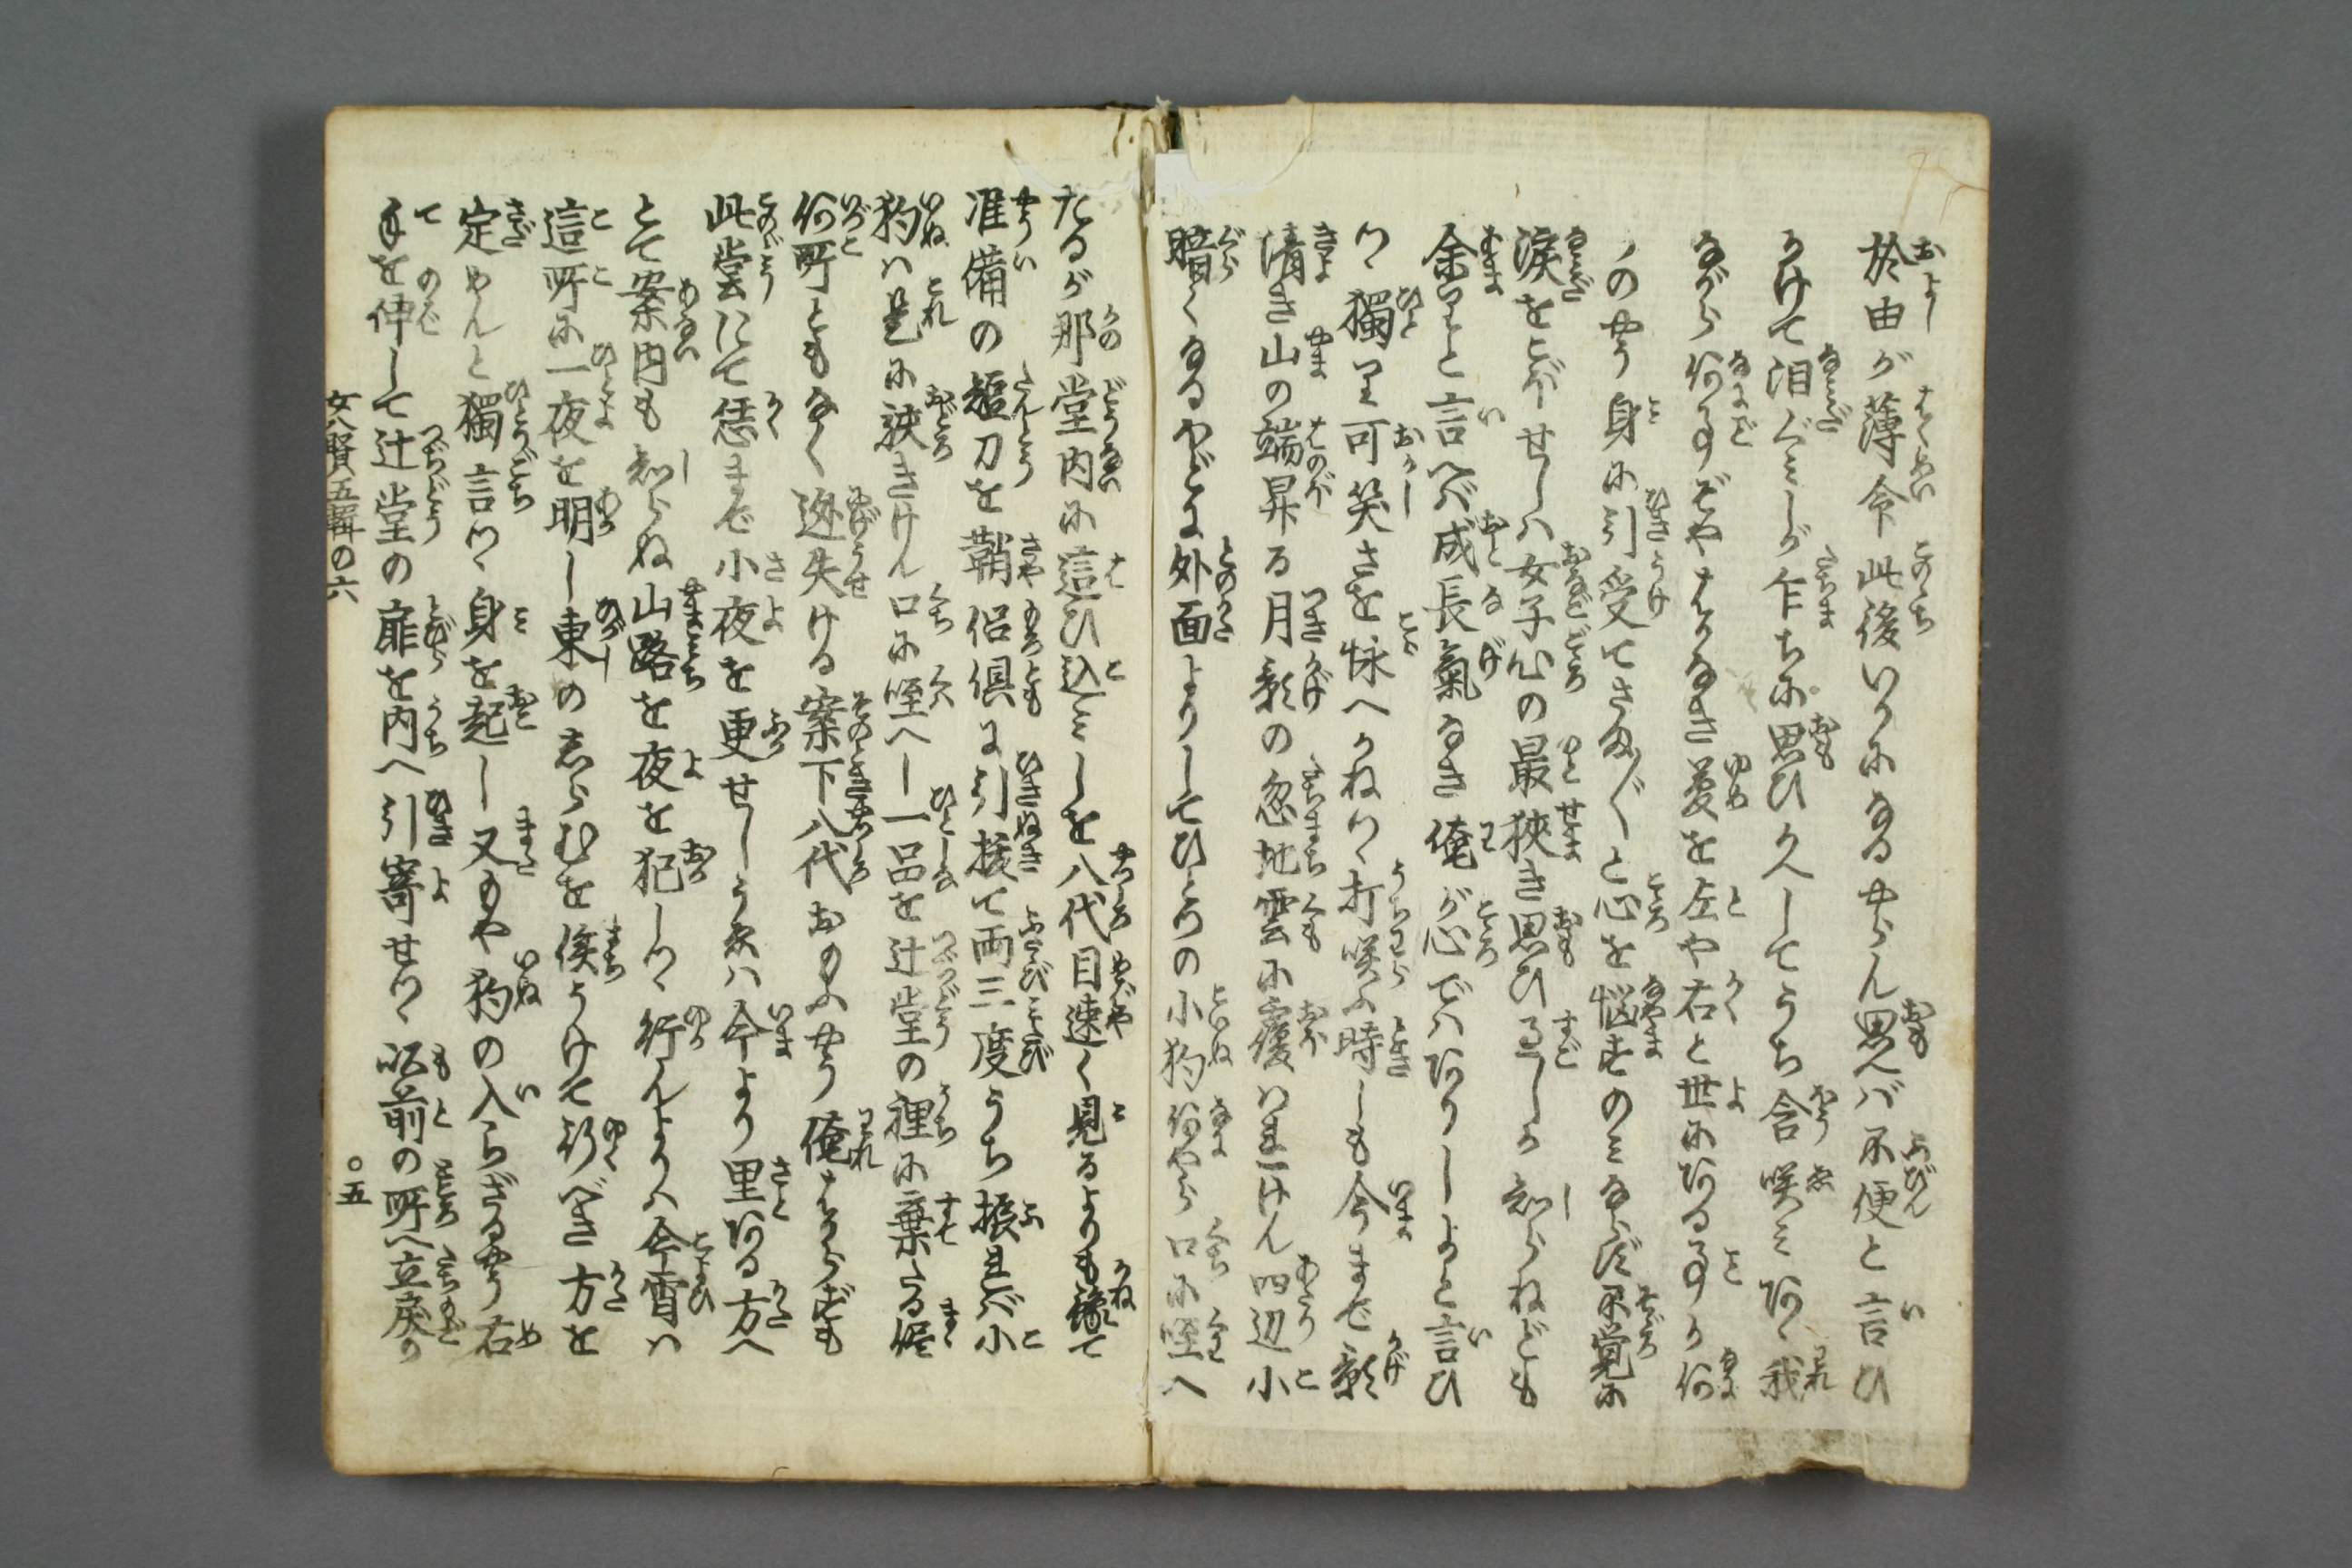 於由が薄命此後いかになるやらん思へバ不便と言ひ
かけて泪ぐミしが乍ちに思ひかへしてうち含咲ミアヽ我
ながら何事ぞやはかなき夢を左や右と世にある事か何
ノのやう身に引受てさま〴〵と心を悩すのミならず不覚に
涙をこぼせしハ女子心の最狭き思ひ過しか知らねども
余りと言へバ成長気なき俺が心でハありしよと言ひ
つヽ獨り可笑さを怺へかねつヽ打咲ふ時しも今まで影
清き山の端昇る月影の忽地雲に覆はれけん四辺小
暗くなるやどに外面よりしてひとつの小狗何やら口に咥へ
たるが那堂内に這ひ込ミしを八代目速く見るよりも予て
准備の短刀を鞘侶倶に引抜て両三度うち振れバ小
狗ハ是に驚きけん口に咥へし一品を辻堂の裡に棄たる侭
何所ともなく迯失ける案下八代おのふやう俺はからずも
此堂にて恁まで小夜を更せしうへハ今より里ある方へ
とて案内も知らぬ山路を夜を犯しつヽ行んよりハ今宵ハ
這所に一夜を明し東のしらむを俟うけて行べき方を
定めんと獨言つヽ身を起し又もや狗の入らざるやう右
手を伸して辻堂の扉を内へ引寄せつヽ以前の所へ立戻り
女八賢五輯の六
〇五